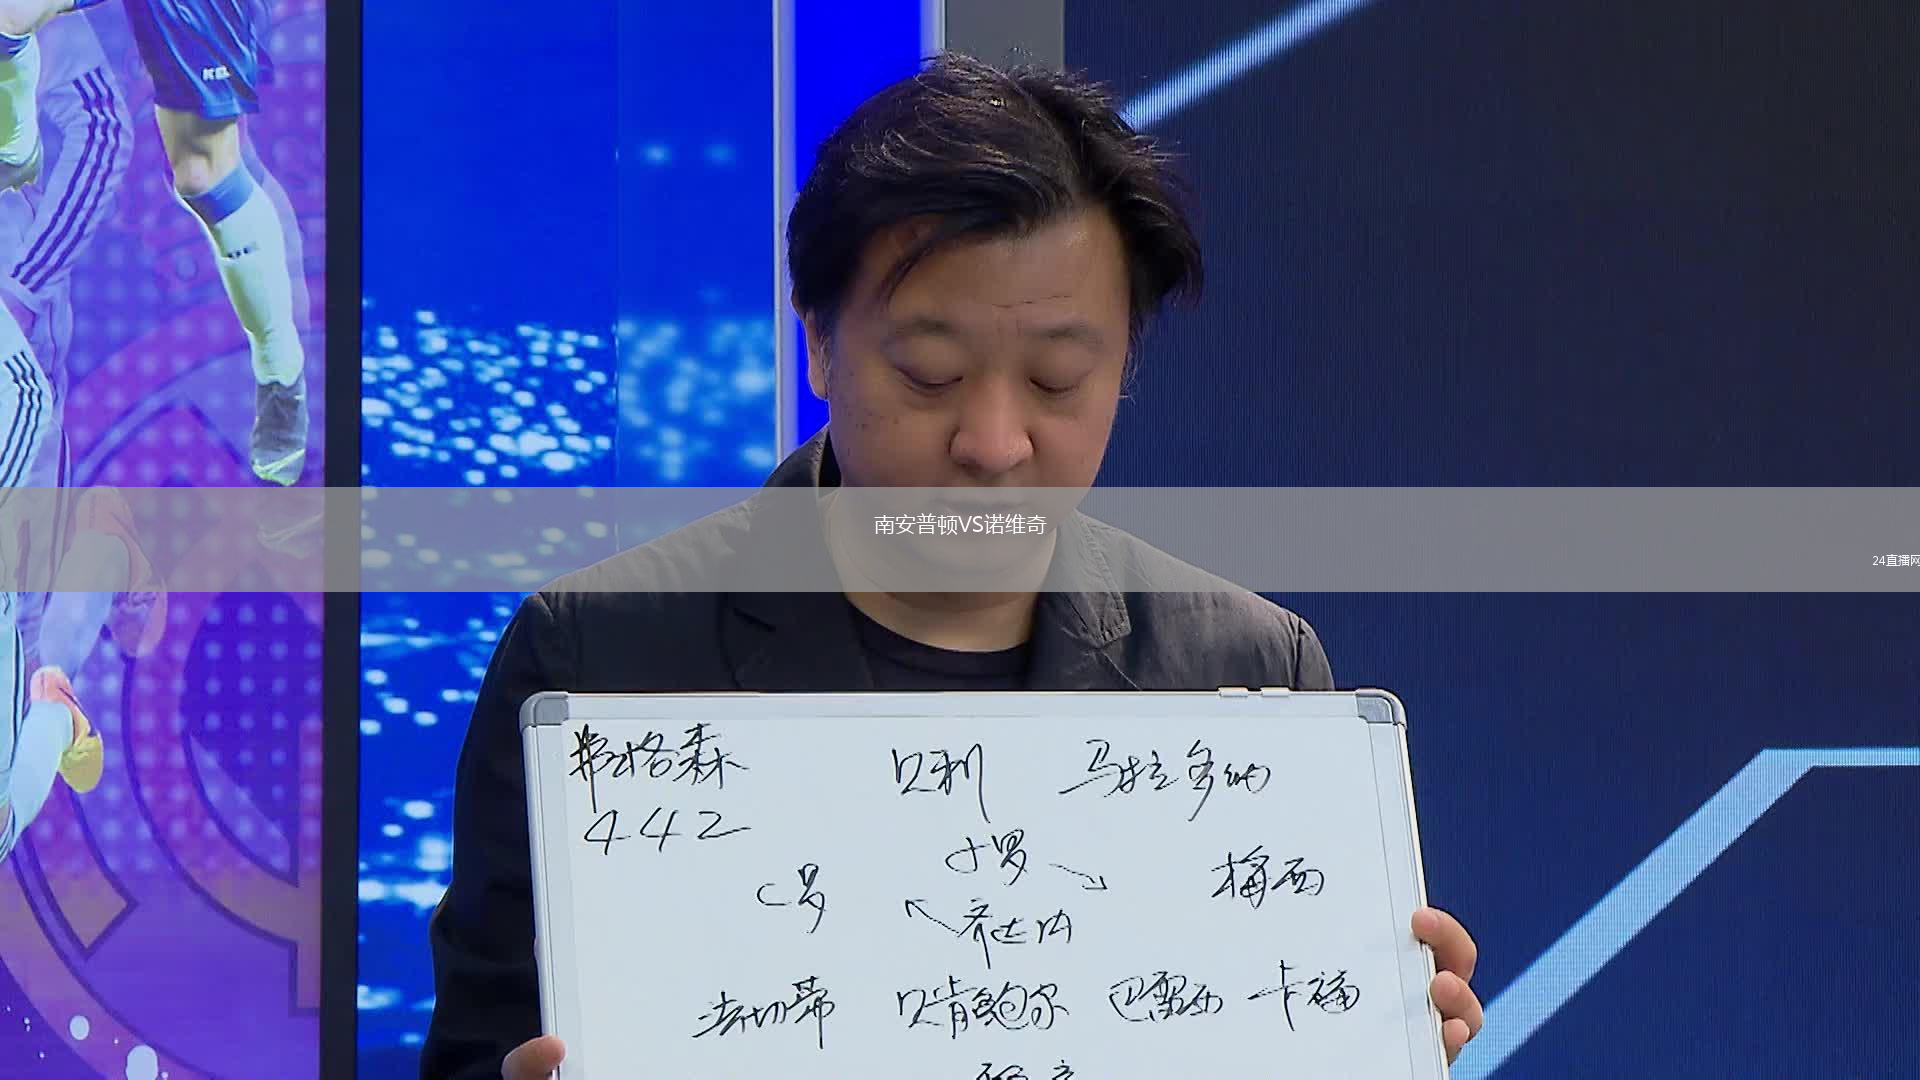 南安普顿VS诺维奇
24直播网
弗格森 贝利 马拉多纳
442
小罗
C罗 梅西
齐达内
法切蒂 贝肯鲍尔 巴雷西 卡福